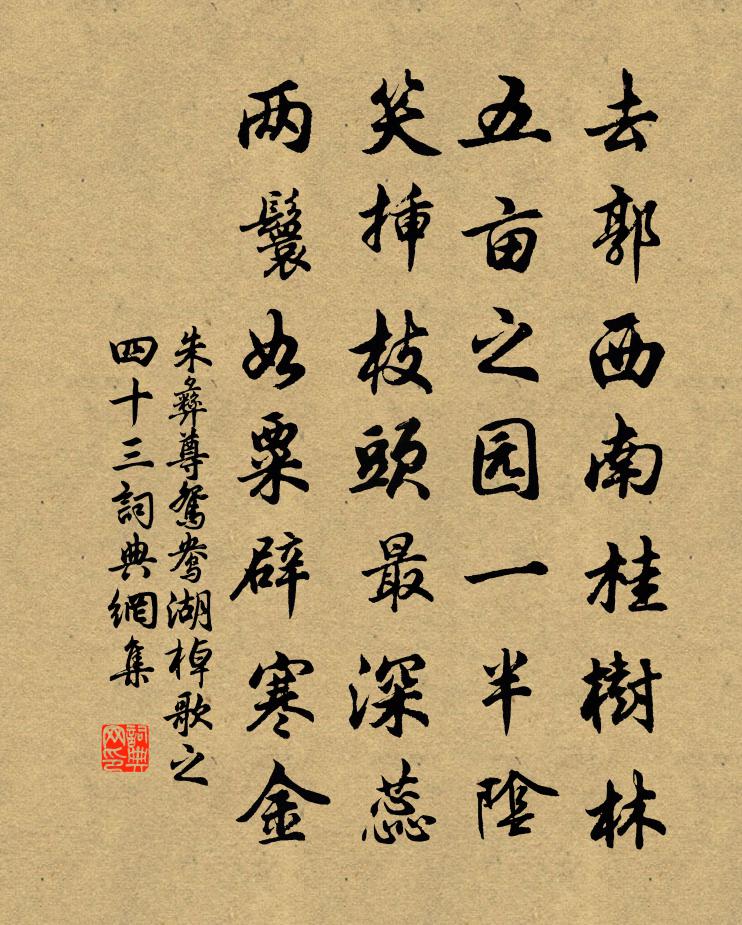 去郭西南桂樹林
五亩之园一半陰
笑挿枝頭最深蕊
两鬟如粟辟寒金
朱彝尊駕鴦湖棹歌之
四十三詞典網集
詞典
网印